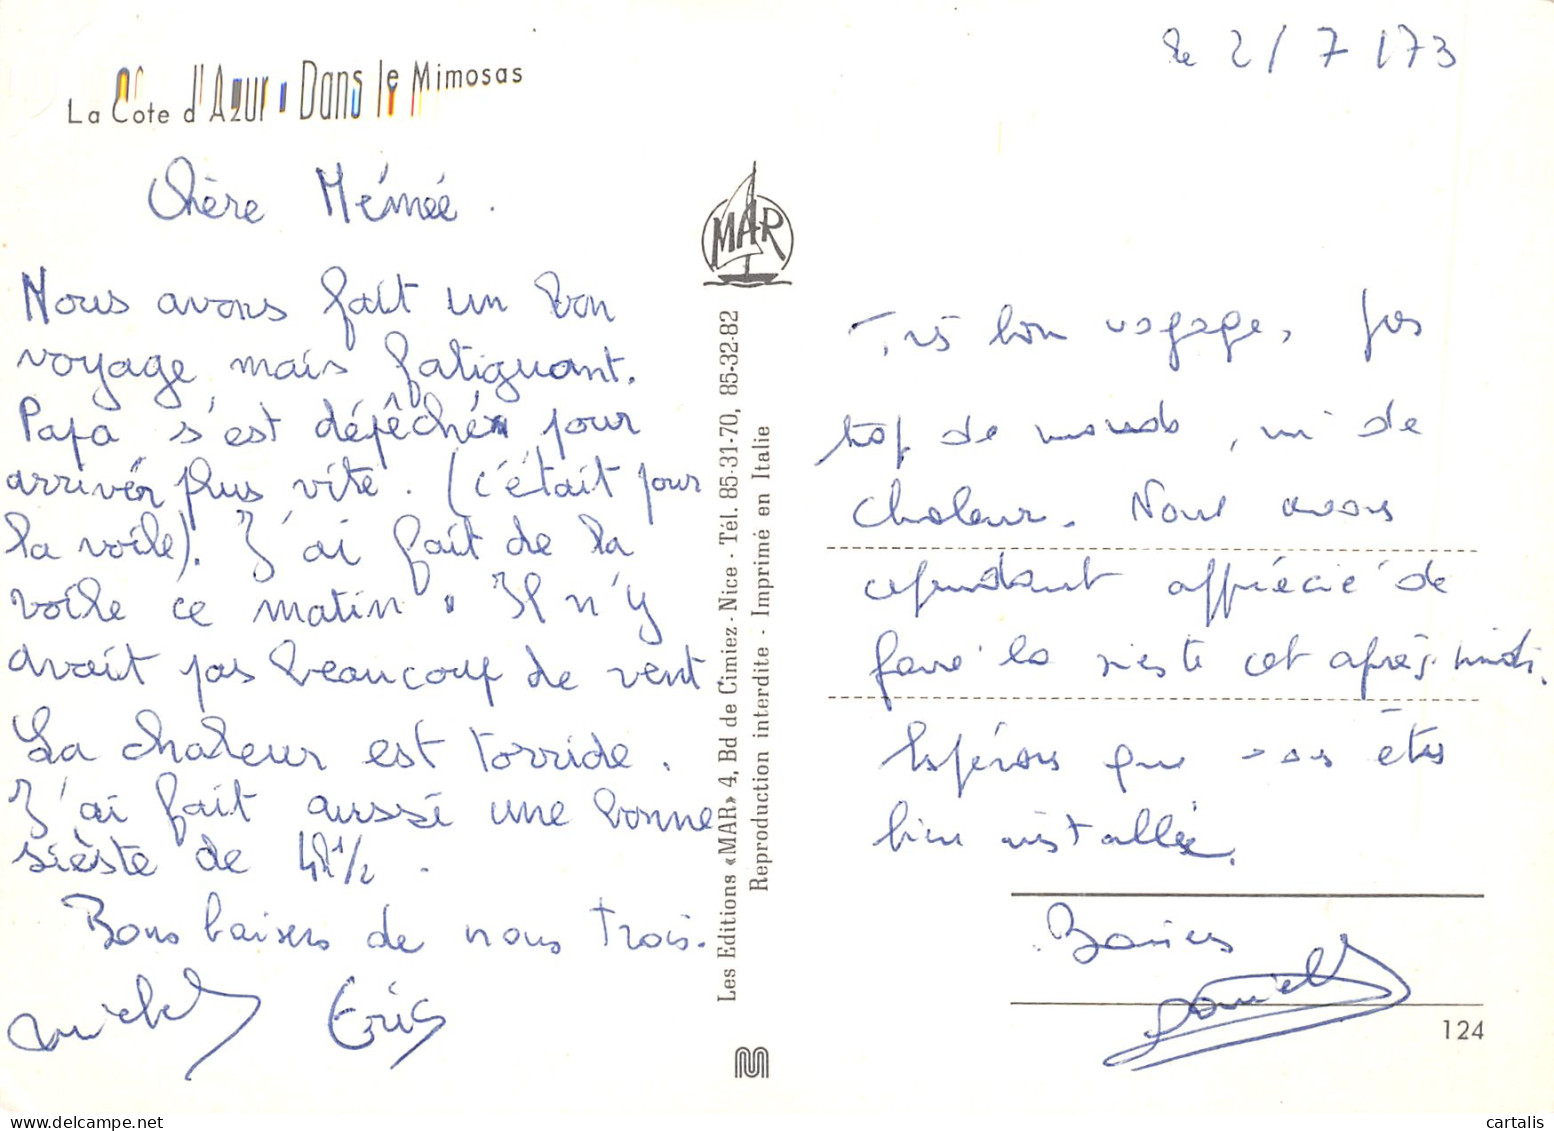 le 2/7/73
La Cote d'Azur · Dans le Mimosas
Chère Mémée.
Nous avons fait un bon
voyage mais fatiguant.
Papa s'est dépêché pour
arriver plus vite. (c'était pour
la voile). J'ai fait de la
voile ce matin. Il n'y
avait pas beaucoup de vent
La chaleur est torride.
J'ai fait aussi une bonne
sièste de 4h1/2.
Bons baisers de nous trois.
Michel Eric
MAR
Les Editions «MAR» 4, Bd de Cimiez - Nice - Tél. 85-31-70, 85-32-82
Reproduction interdite - Imprimé en Italie
Très bon voyage, pas
trop de monde, ni de
chaleur. Nous avons
cependant apprécié de
faire la sieste cet après-midi.
Espérons que vous êtes
bien installée.
Baisers
Danielle
124
cartalis